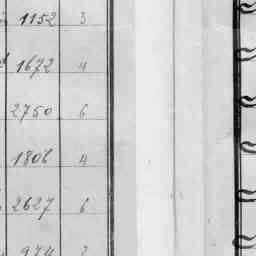 1152 3
1672 4
2750 6
1806 4
2627 6
974